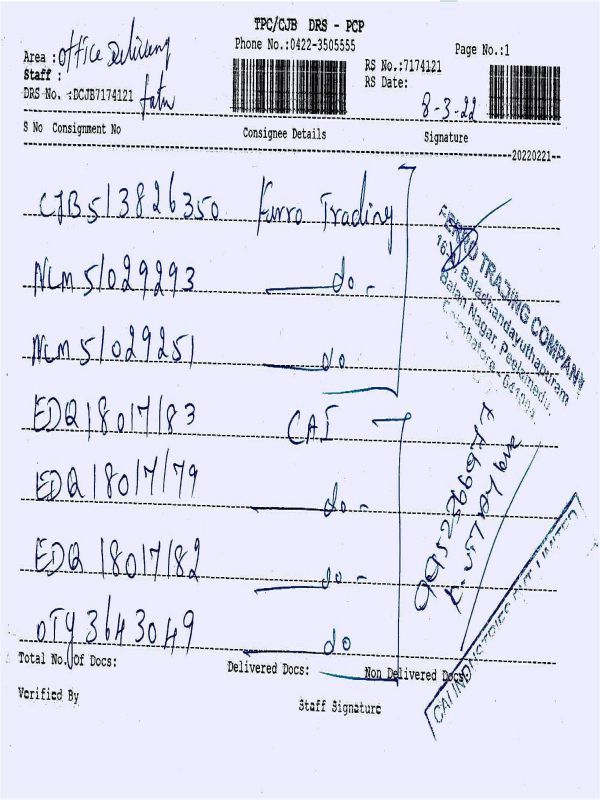 TPC/CJB DRS - PCP
Area : Office Delivery Phone No.:0422-3505555 Page No.:1
Staff : RS No.:7174121
DRS No. :DCJB7174121 RS Date: 8-3-22
S No Consignment No Consignee Details Signature
20220221--
CJB513826350 Furro Trading
NLM51029293 do-
NLM51029251 do
EDQ18017183 CAI
EDQ18017179 do-
EDQ 18017182 do-
OTY 3643049 do
TRADING COMPANY
Balachandavuthapuram
Balan Nagar, Peelamedu,
Coimbatore
CAI INDUSTRIES PVT. LIMITED
Total No. Of Docs: Delivered Docs: Non Delivered Docs:
Verified By Staff Signature